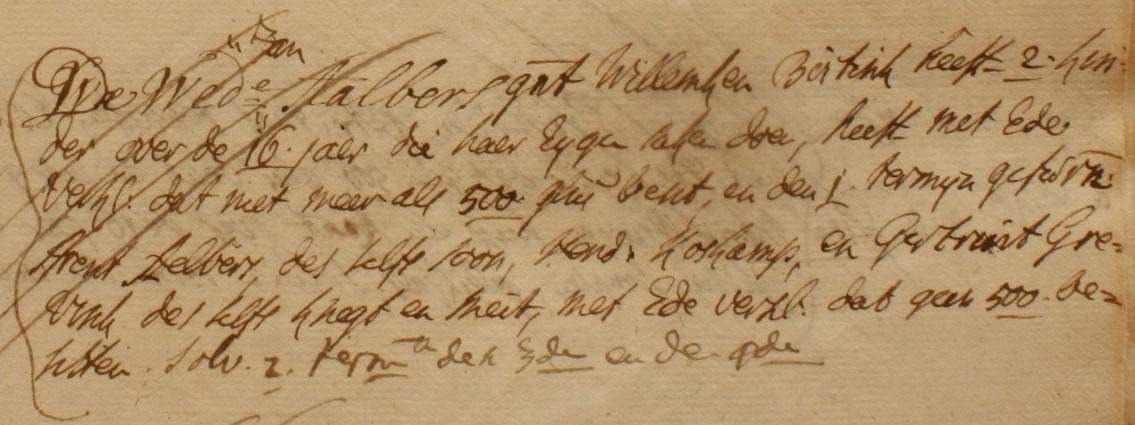 Jan
De Wed.e Aalbers gnt Willemken Bûsink heeft 2. kin-
der over de 16. jaer die haer Eygen saken doen, heeft met Ede
verkl. dat niet meer als 500. gûl besit, en den 1. termyn gefurn.
Arent Aelbers, des selfs soon, Hend. Koskamp, en Gertruit Gre-
vink des selfs knegt en meit, met Ede verkl. dat geen 500. be-
sitten. solv. 2. term den 3de en de 4de